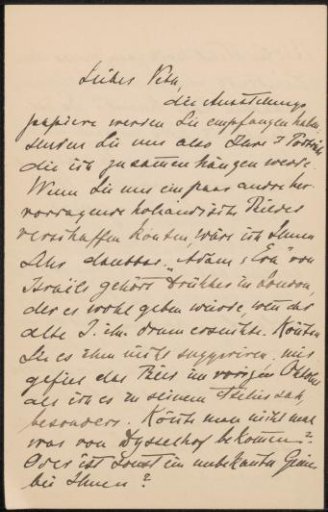 Lieber Veth,
die Ausstellungs
papiere werden Sie empfangen haben.
Senden Sie uns also Ihre 3 Porträts
die ich zusammen hängen werde.
Wenn Sie uns ein paar andre her-
vorragende holländische Bilder
verschaffen könten, wäre ich Ihnen
sehr dankbar. „Adam & Eva" von
Israëls gehört Drükker in London,
der es wohl geben würde, wenn der
alte I. ihn drum ersuchte. Könten
Sie es ihm nicht suggeriren. mir
gefiel das Bild im vorigen Oktober
als ich es in seinem Atelier sah,
besonders. Könte man nicht mal
was von Dysselhof bekommen?
Oder ist sonst ein unbekantes Genie
bei Ihnen?